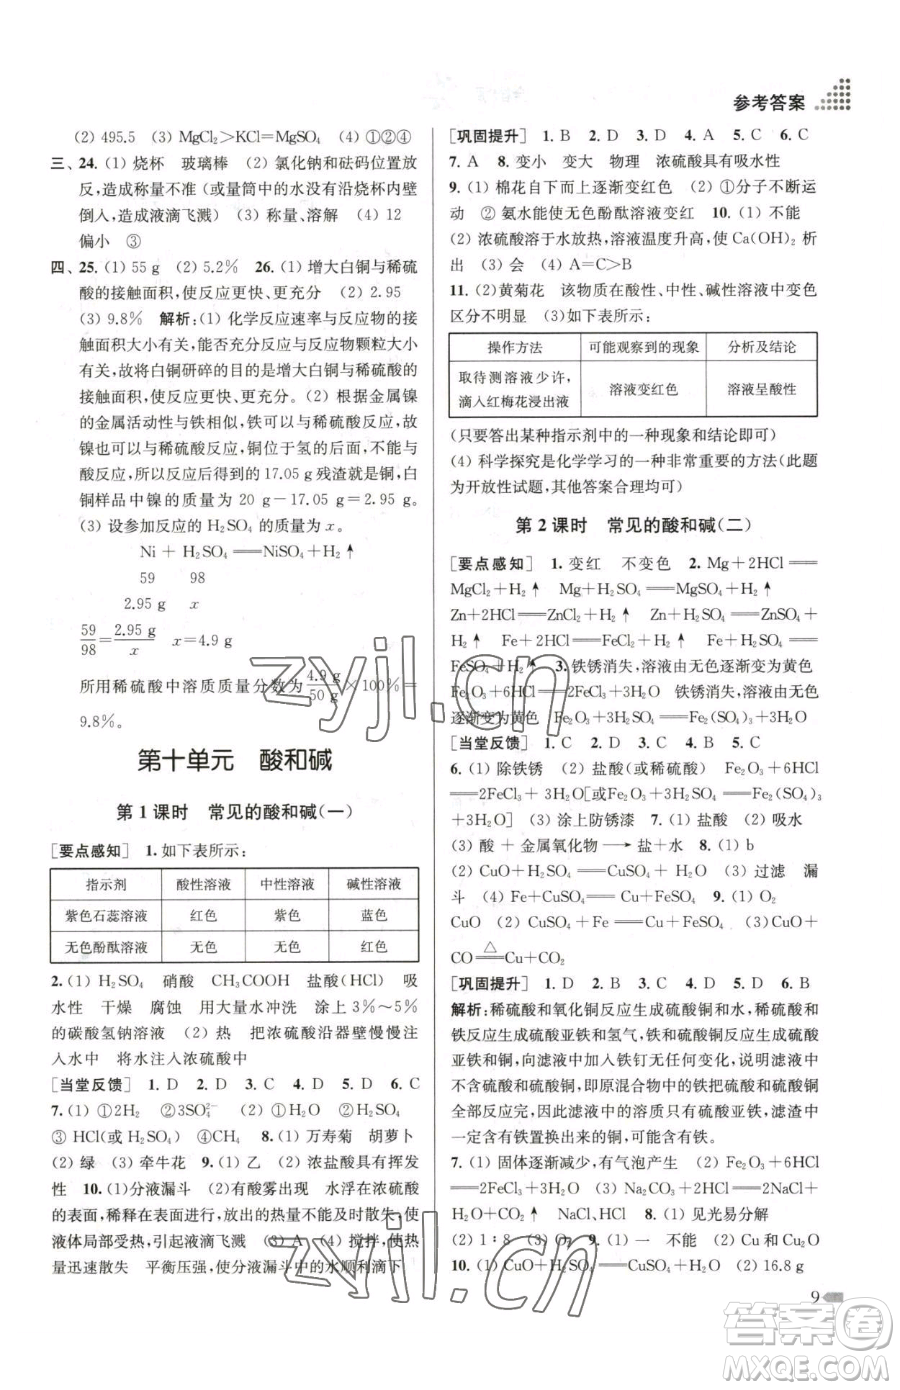 参考答案
(2) 495.5　(3) MgCl₂＞KCl＝MgSO₄　(4) ①②④
三、24. (1) 烧杯　玻璃棒　(2) 氯化钠和砝码位置放
反,造成称量不准(或量筒中的水没有沿烧杯内壁
倒入,造成液滴飞溅)　(3) 称量、溶解　(4) 12
偏小　③
四、25. (1) 55 g　(2) 5.2%　26. (1) 增大白铜与稀硫
酸的接触面积,使反应更快、更充分　(2) 2.95
(3) 9.8%　解析:(1) 化学反应速率与反应物的接
触面积大小有关,接触面积与反应物颗粒大小有
关,所以将白铜研碎的目的是增大白铜与稀硫酸的
接触面积,使反应更快、更充分。(2) 根据金属镍
的金属活动性与铁相似,铁可以与硫酸反应,故
镍可以与稀硫酸反应,铜位于氢的后面,不能与
酸反应,所以反应后得到的 17.05 g 残渣就是铜,白
铜样品中镍的质量为 20 g－17.05 g＝2.95 g。
(3) 设参加反应的 H₂SO₄ 的质量为 x。
Ni ＋ H₂SO₄ ══ NiSO₄＋H₂↑
59　98
2.95 g　x
59/98＝2.95 g/x　x＝4.9 g
所用稀硫酸中溶质质量分数为 4.9 g/50 g ×100%＝
9.8%。
第十单元　酸和碱
第 1 课时　常见的酸和碱(一)
[要点感知]　1. 如下表所示:
指示剂　酸性溶液　中性溶液　碱性溶液
紫色石蕊溶液　红色　紫色　蓝色
无色酚酞溶液　无色　无色　红色
2. (1) H₂SO₄　硝酸　CH₃COOH　盐酸(HCl)　吸
水性　干燥　腐蚀　用大量水冲洗　涂上 3%～5%
的碳酸氢钠溶液　(2) 热　把浓硫酸沿器壁慢慢注
入水中　将水注入浓硫酸中
[当堂反馈]　1. D　2. D　3. D　4. B　5. D　6. C
7. (1) ①2H₂　②3SO₄²⁻
③ HCl(或 H₂SO₄)　④CH₄　8. (1) 万寿菊　胡萝卜
(2) 绿　(3) 牵牛花　9. (1) 乙　(2) 浓盐酸具有挥发
性　10. (1)分液漏斗　(2)有酸雾出现　水浮在浓硫酸
的表面,稀释时在表面,放出的热量不易及时散失,使
液体局部受热,引起液滴飞溅　(3) A　(4) 搅拌,使热
量迅速散失　平衡压强,使分液漏斗中的水顺利滴下
[巩固提升]　1. B　2. D　3. D　4. A　5. C　6. C
7. A　8. 变小　变大　物理　浓硫酸具有吸水性
9. (1) 棉花自下而上逐渐变红色　(2) ①分子不断运
动　② 氨水能使无色酚酞溶液变红　10. (1) 不能
(2) 浓硫酸溶于水放热,溶液温度升高,使 Ca(OH)₂ 析
出　(3) 会　(4) A＝C＞B
11. (2)黄菊花　该物质在酸性、中性、碱性溶液中变色
区分不明显　(3)如下表所示:
操作方法　可能观察到的现象　分析及结论
取待测溶液少许,
滴入红梅花浸出液　溶液变红色　溶液呈酸性
(只要答出某种指示剂中的一种现象和结论即可)
(4) 科学探究是化学学习的一种非常重要的方法(此题
为开放性试题,其他答案合理均可)
第 2 课时　常见的酸和碱(二)
[要点感知]　1. 变红　不变色　2. Mg＋2HCl══
MgCl₂＋H₂↑　Mg＋H₂SO₄══MgSO₄＋H₂↑
Zn＋2HCl══ZnCl₂＋H₂↑　Zn＋H₂SO₄══ZnSO₄＋
H₂↑　Fe＋2HCl══FeCl₂＋H₂↑　Fe＋H₂SO₄══
FeSO₄＋H₂↑　3. 铁锈消失,溶液由无色逐渐变为黄色
Fe₂O₃＋6HCl══2FeCl₃＋3H₂O　铁锈消失,溶液由无色
逐渐变为黄色　Fe₂O₃＋3H₂SO₄══Fe₂(SO₄)₃＋3H₂O
[当堂反馈]　1. C　2. C　3. B　4. B　5. C
6. (1) 除铁锈　(2) 盐酸(或稀硫酸)　Fe₂O₃＋6HCl══
2FeCl₃＋3H₂O[或Fe₂O₃＋3H₂SO₄══Fe₂(SO₄)₃
＋3H₂O]　(3) 涂上防锈漆　7. (1) 盐酸　(2) 吸水
(3) 酸 ＋ 金属氧化物 ⟶ 盐＋水　8. (1) b
(2) CuO＋H₂SO₄══CuSO₄＋ H₂O　(3) 过滤　漏
斗　(4) Fe＋CuSO₄══Cu＋FeSO₄　9. (1) O₂
CuO　(2) CuSO₄＋Fe══Cu＋FeSO₄　CuO＋
CO══△══Cu＋CO₂
[巩固提升]　1. D　2. B　3. C　4. D　5. D　6. B
解析:稀硫酸和氧化铜反应生成硫酸铜和水,稀硫酸和
铁反应生成硫酸亚铁和氢气,铁和硫酸铜反应生成硫
酸亚铁和铜,向滤液中加入铁钉无任何变化,说明滤液中
不含硫酸和硫酸铜,即原混合物中的铁把硫酸和硫酸铜
全部反应完,因此滤液中的溶质只有硫酸亚铁,滤渣中
一定含有铁置换出来的铜,可能含有铁。
7. (1) 固体逐渐减少,有气泡产生　(2) Fe₂O₃＋6HCl
══2FeCl₃＋3H₂O　(3) Na₂CO₃＋2HCl══2NaCl＋
H₂O＋CO₂↑　NaCl、HCl　8. (1) 见光易分解
(2) 1∶8　(3) 2　9. (1) 一　不能　(2) Cu 和 Cu₂O
10. (1) CuO＋H₂SO₄══CuSO₄＋H₂O　(2) 16.8 g
9
zyjl.cn
zyjl.cn
答案圈
MXQE.COM